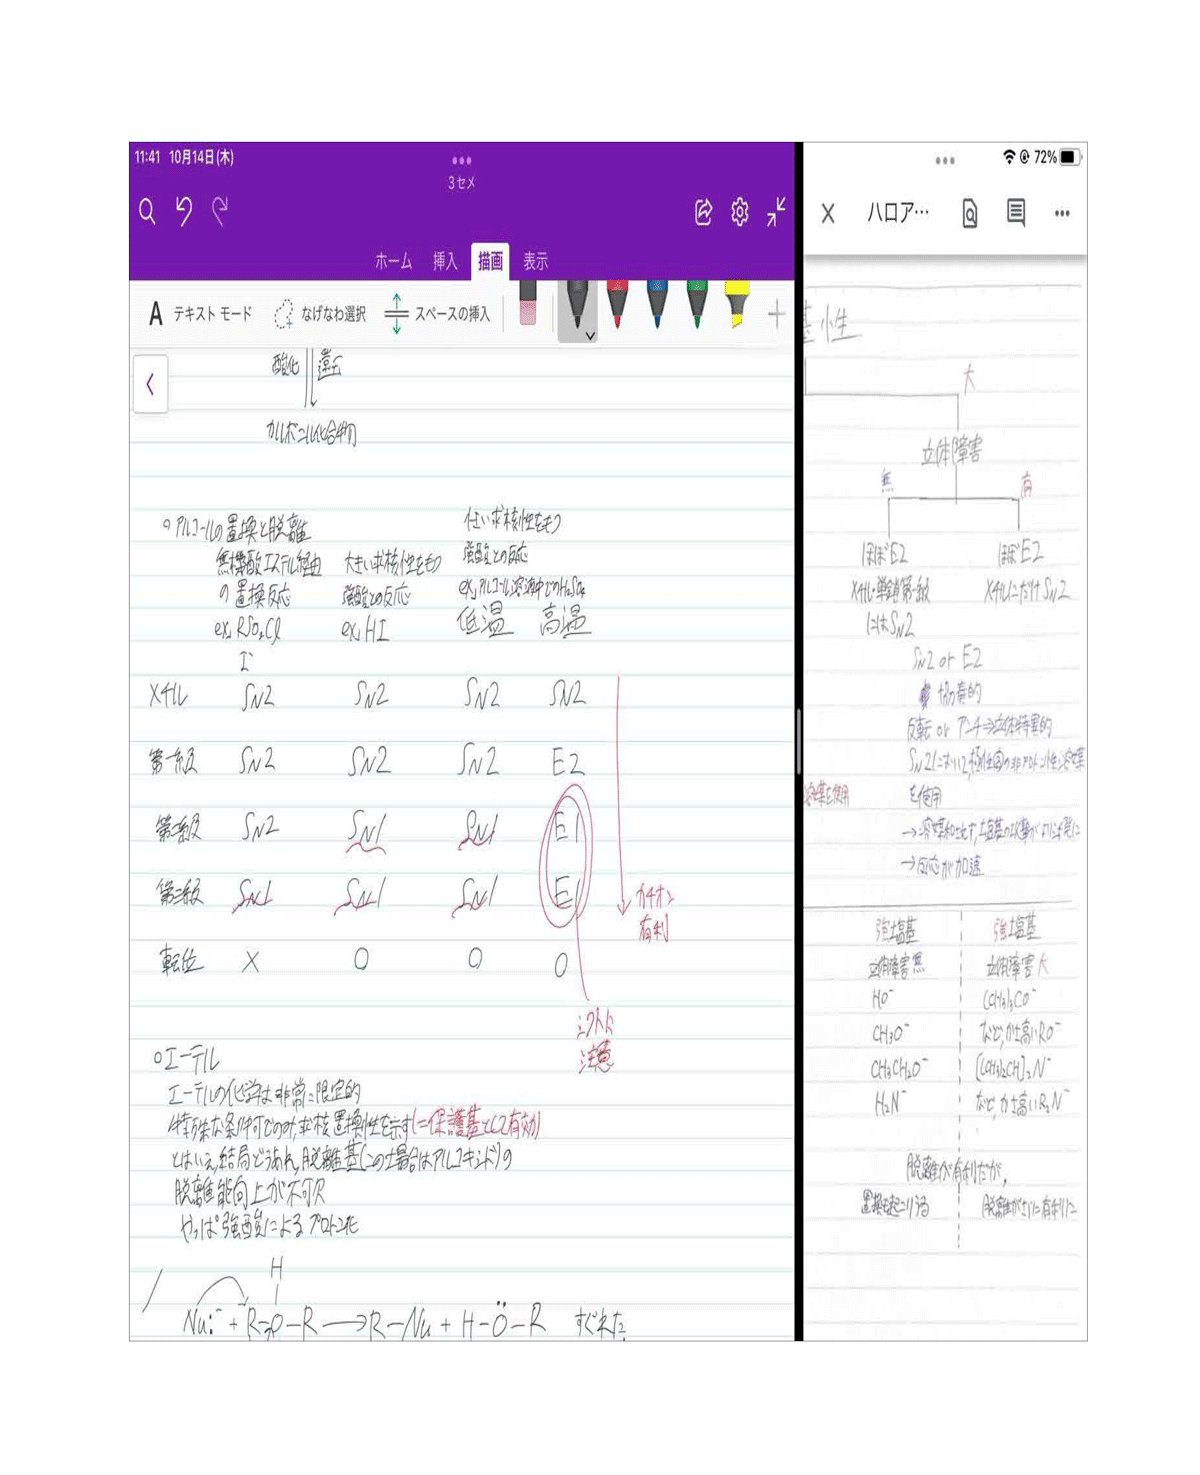 11:41 10月14日(木)
3セメ
ホーム 挿入 描画 表示
A テキスト モード なげなわ選択 スペースの挿入
酸化 還元
カルボニル化合物
○アルコールの置換と脱離
無機酸エステル経由
の置換反応
ex, RSO2Cl
I-
大きい求核性をもつ
強酸との反応
ex, HI
低い求核性をもつ
強酸との反応
ex, アルコール溶液中でのH2SO4
低温 高温
メチル SN2 SN2 SN2 SN2
第一級 SN2 SN2 SN2 E2
第二級 SN2 SN1 SN1 E1
第三級 SN1 SN1 SN1 E1
転位 × ○ ○ ○
カチオン
有利
シフトに
注意
○エーテル
エーテルの化学は非常に限定的
特殊な条件下でのみ、求核置換性を示す(=保護基として有効)
とはいえ、結局どうあれ、脱離基(この場合はアルコキシド)の
脱離能向上が不可欠
やっぱ強酸によるプロトン化
H
Nu:- + R-O-R → R-Nu + H-Ö-R すぐれた
72%
ハロア…
基性
大
立体障害
無 有
ほぼE2
メチル・単純第一級
にはSN2
ほぼE2
メチルにだけSN2
SN2 or E2
協奏的
反転 or アンチ⇒立体特異的
SN2において、極性の非プロトン性溶媒
を使用
溶媒を使用
→反応が加速
強塩基
立体障害 無
HO-
CH3O-
CH3CH2O-
H2N-
強塩基
立体障害 大
(CH3)3CO-
など、かさ高いRO-
[(CH3)2CH]2N-
など、かさ高いR2N-
脱離が有利だが、
置換も起こりうる
脱離がさらに有利に